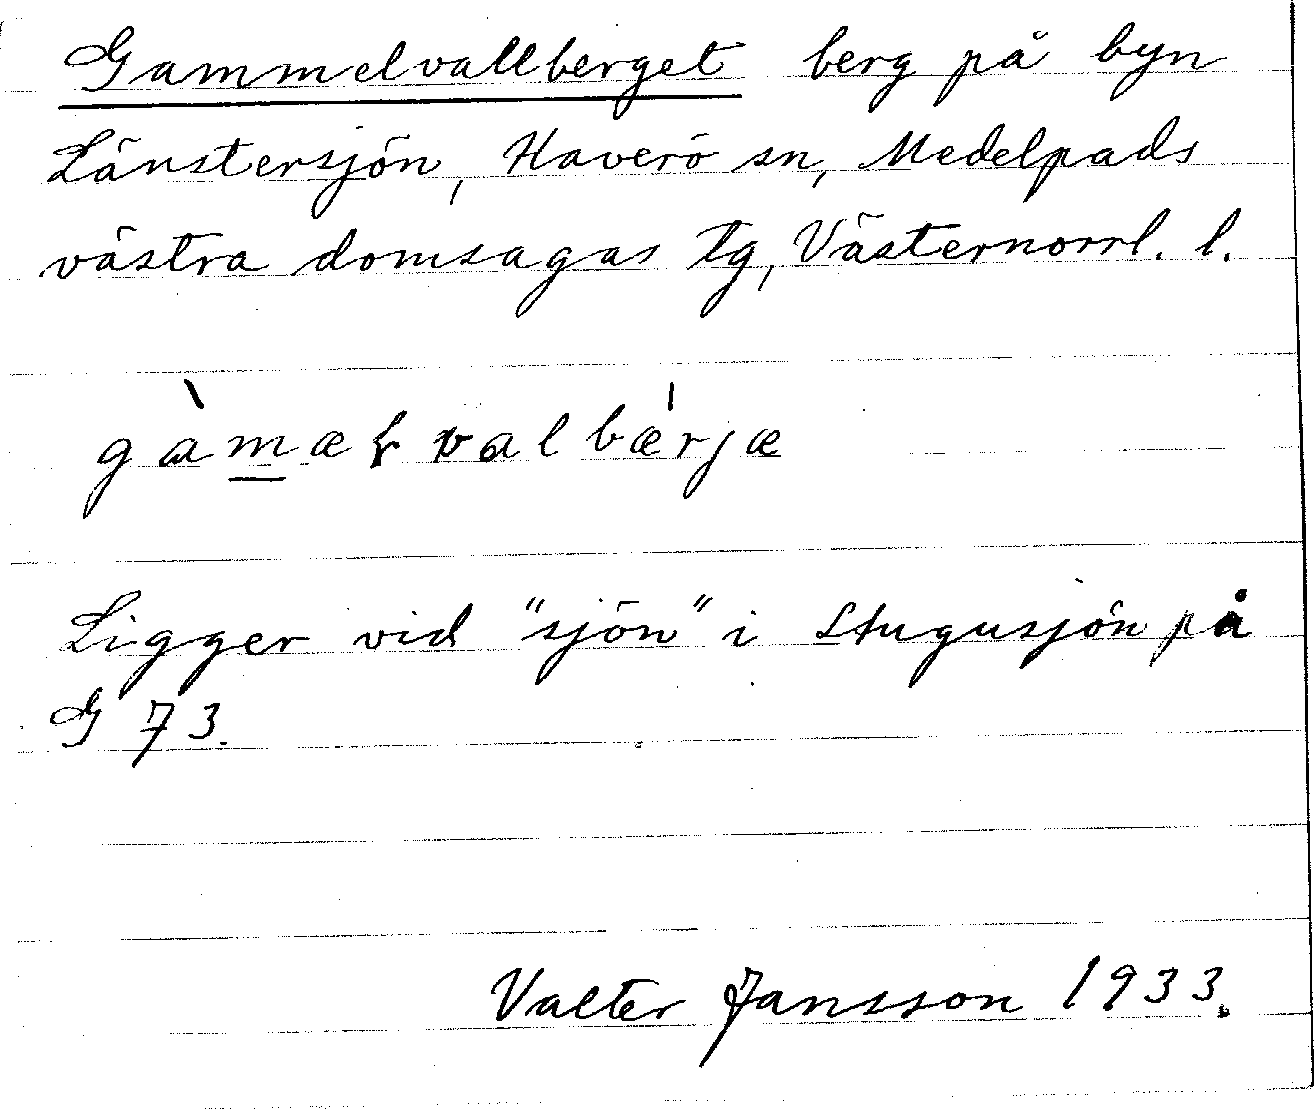 Gammelvallberget berg på byn
Länstersjön, Haverö sn, Medelpads
västra domsagas tg, Västernorrl. l.
gàmæɽvalbæ̍rjæ
Ligger vid "sjön" i Stugusjön på
G 73.
Valter Jansson 1933.